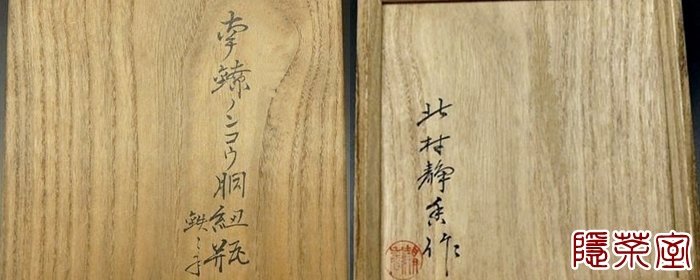 南鐐ノンコウ胴紐瓶
鉄之手
北村静香作
隱茶室